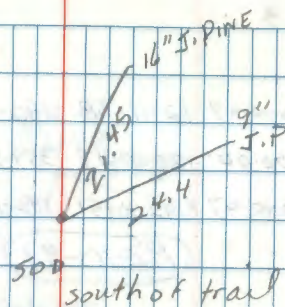 16" J. PINE
9"
J.P
21.45
24.4
500
south of trail